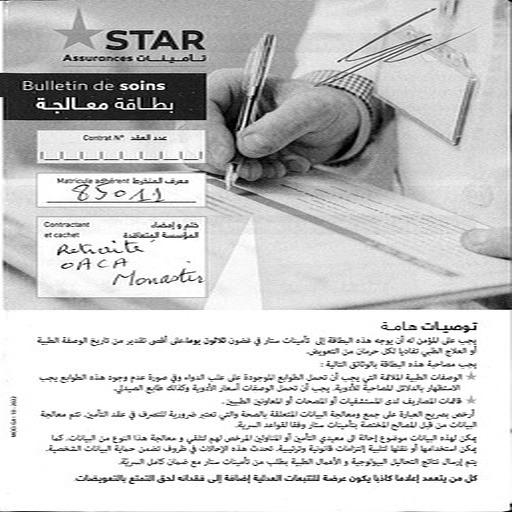 STAR
Assurances تـأمـيـنـات
Bulletin de soins
بطـاقة معـالجـة
Contrat N° عدد العقد
Matricule adhérent معرف المنخرط
85011
Contractant ختم و إمضاء
et cachet المؤسسة المتعاقدة
Retraité
OACA
Monastir
توصيـات هامـة
يجب على المؤمن له أن يوجه هذه البطاقة إلى تأمينات ستار في غضون ثلاثون يوما على أقصى تقدير من تاريخ الوصفة الطبية
أو العلاج الطبي تفاديا لكل حرمان من التعويض.
يجب مصاحبة هذه البطاقة بالوثائق التالية :
الوصفات الطبية الملائمة التي يجب أن تحمل الطوابع الموجودة على علب الدواء وفي صورة عدم وجود هذه الطوابع يجب
الاستظهار بالدلائل المصاحبة للأدوية. يجب أن تحمل الوصفات أسعار الأدوية وكذلك طابع الصيدلي.
قائمات المصاريف لدى المستشفيات أو المصحات أو المعاونين الطبيين.
أرخص بصريح العبارة على جمع ومعالجة البيانات المتعلقة بالصحة والتي تعتبر ضرورية للتصرف في عقد التأمين. تتم معالجة
البيانات من قبل المصالح المختصة بتأمينات ستار وفقا لقواعد السرية.
يمكن لهذه البيانات موضوع إحالة إلى معيدي التأمين أو المناولين المرخص لهم لتلقي و معالجة هذا النوع من البيانات. كما
يمكن استخدامها أو نقلها لتلبية إلتزامات قانونية وترتيبية. تحدث هذه الإحالات في ظروف تضمن حماية البيانات الشخصية.
يتم إرسال نتائج التحاليل البيولوجية و الأعمال الطبية بطلب من تأمينات ستار مع ضمان كامل السرية.
كل من يتعمد إعلاما كاذبا يكون عرضة للتتبعات العدلية إضافة إلى فقدانه لحق التمتع بالتعويضات.